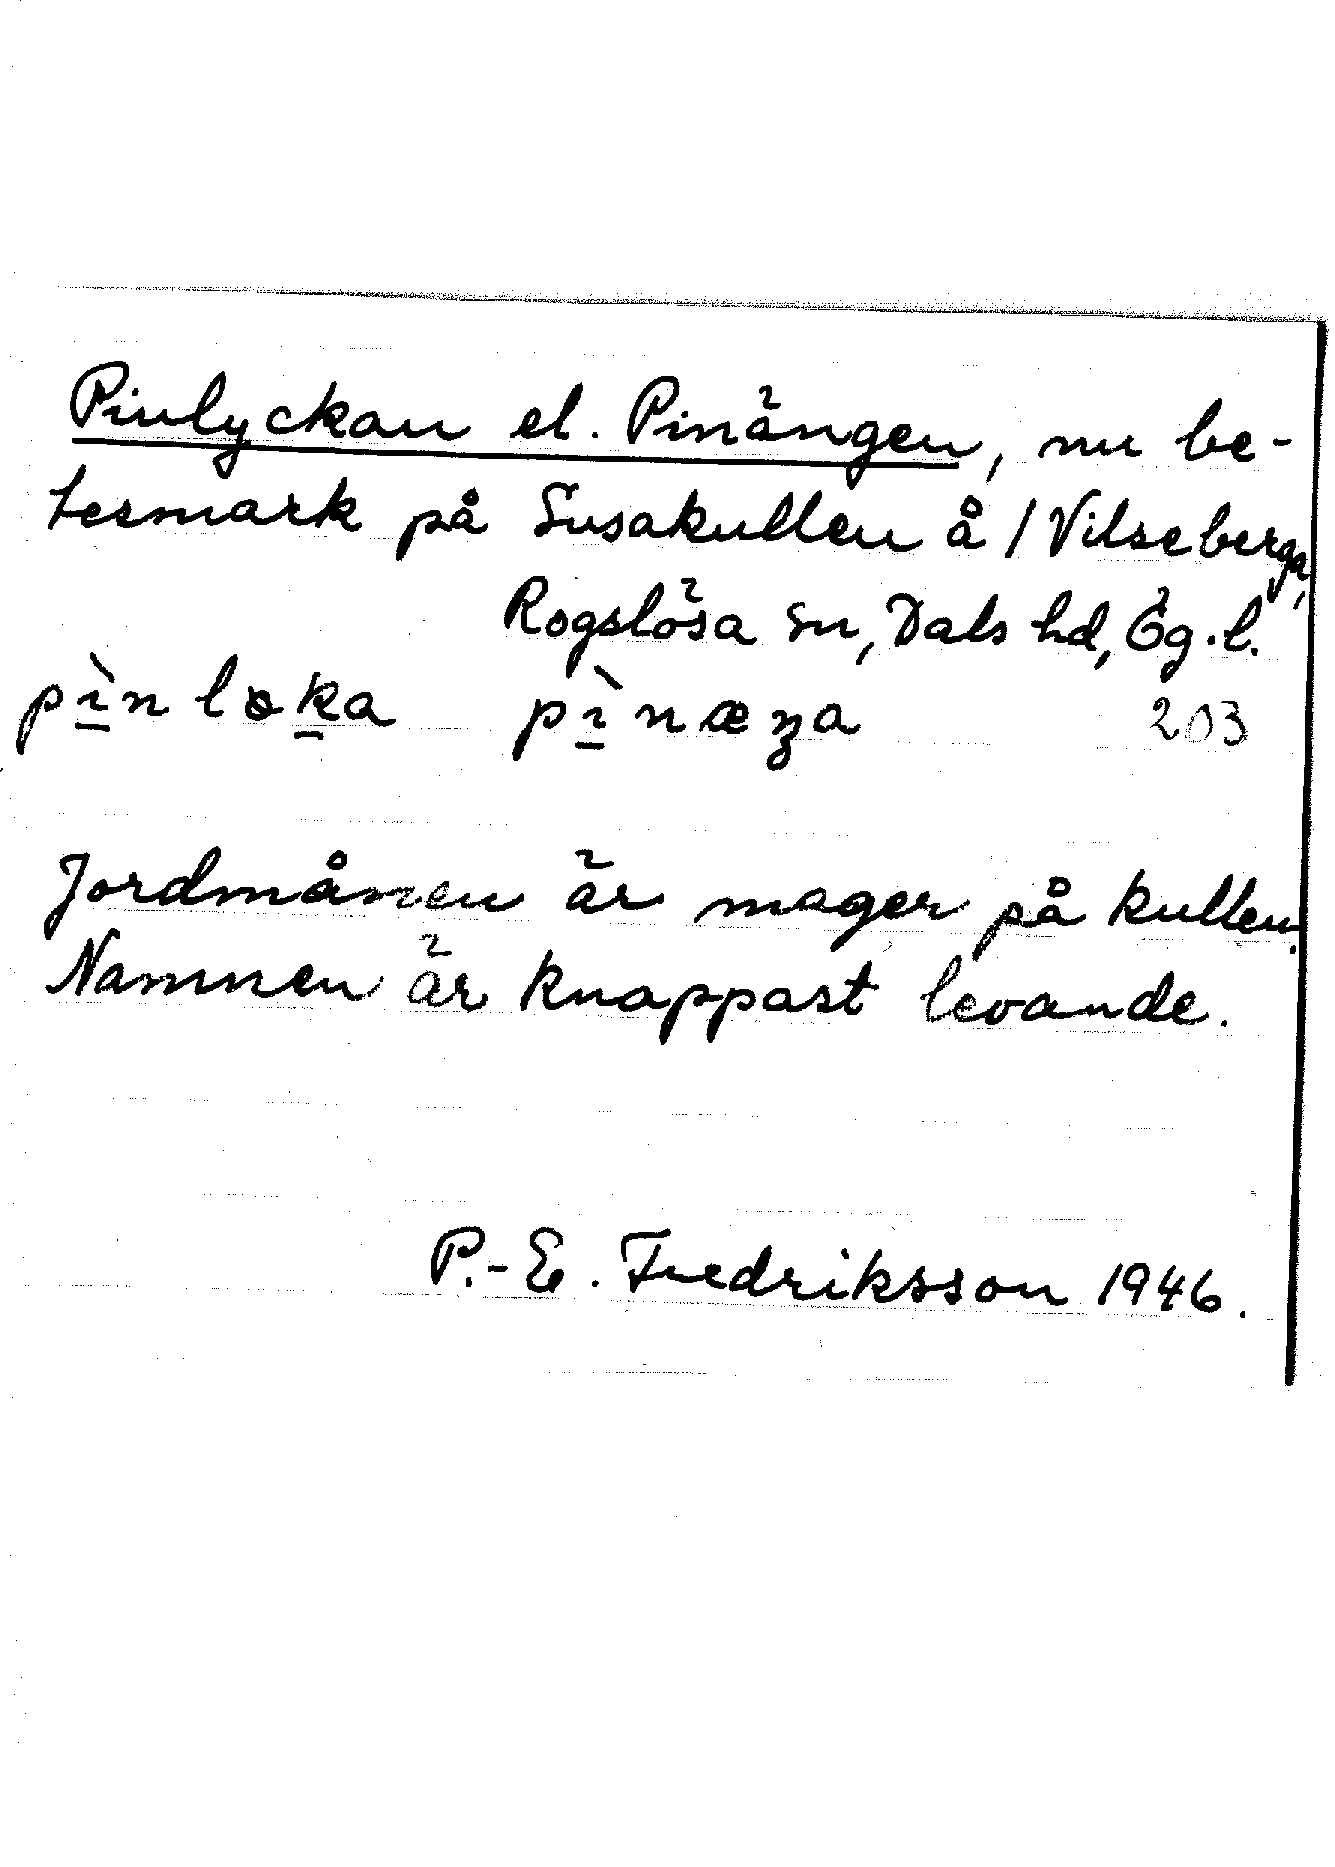 Pinlyckan el. Pinängen, nu be-
tesmark på Susakullen å /Vilseberga,
Rogslösa sn, Dals hd, Ög.l.
pı̀n lɵka pı̀næŋa 203
Jordmånen är mager på kullen.
Namnen är knappast levande.
P.-E. Fredriksson 1946.